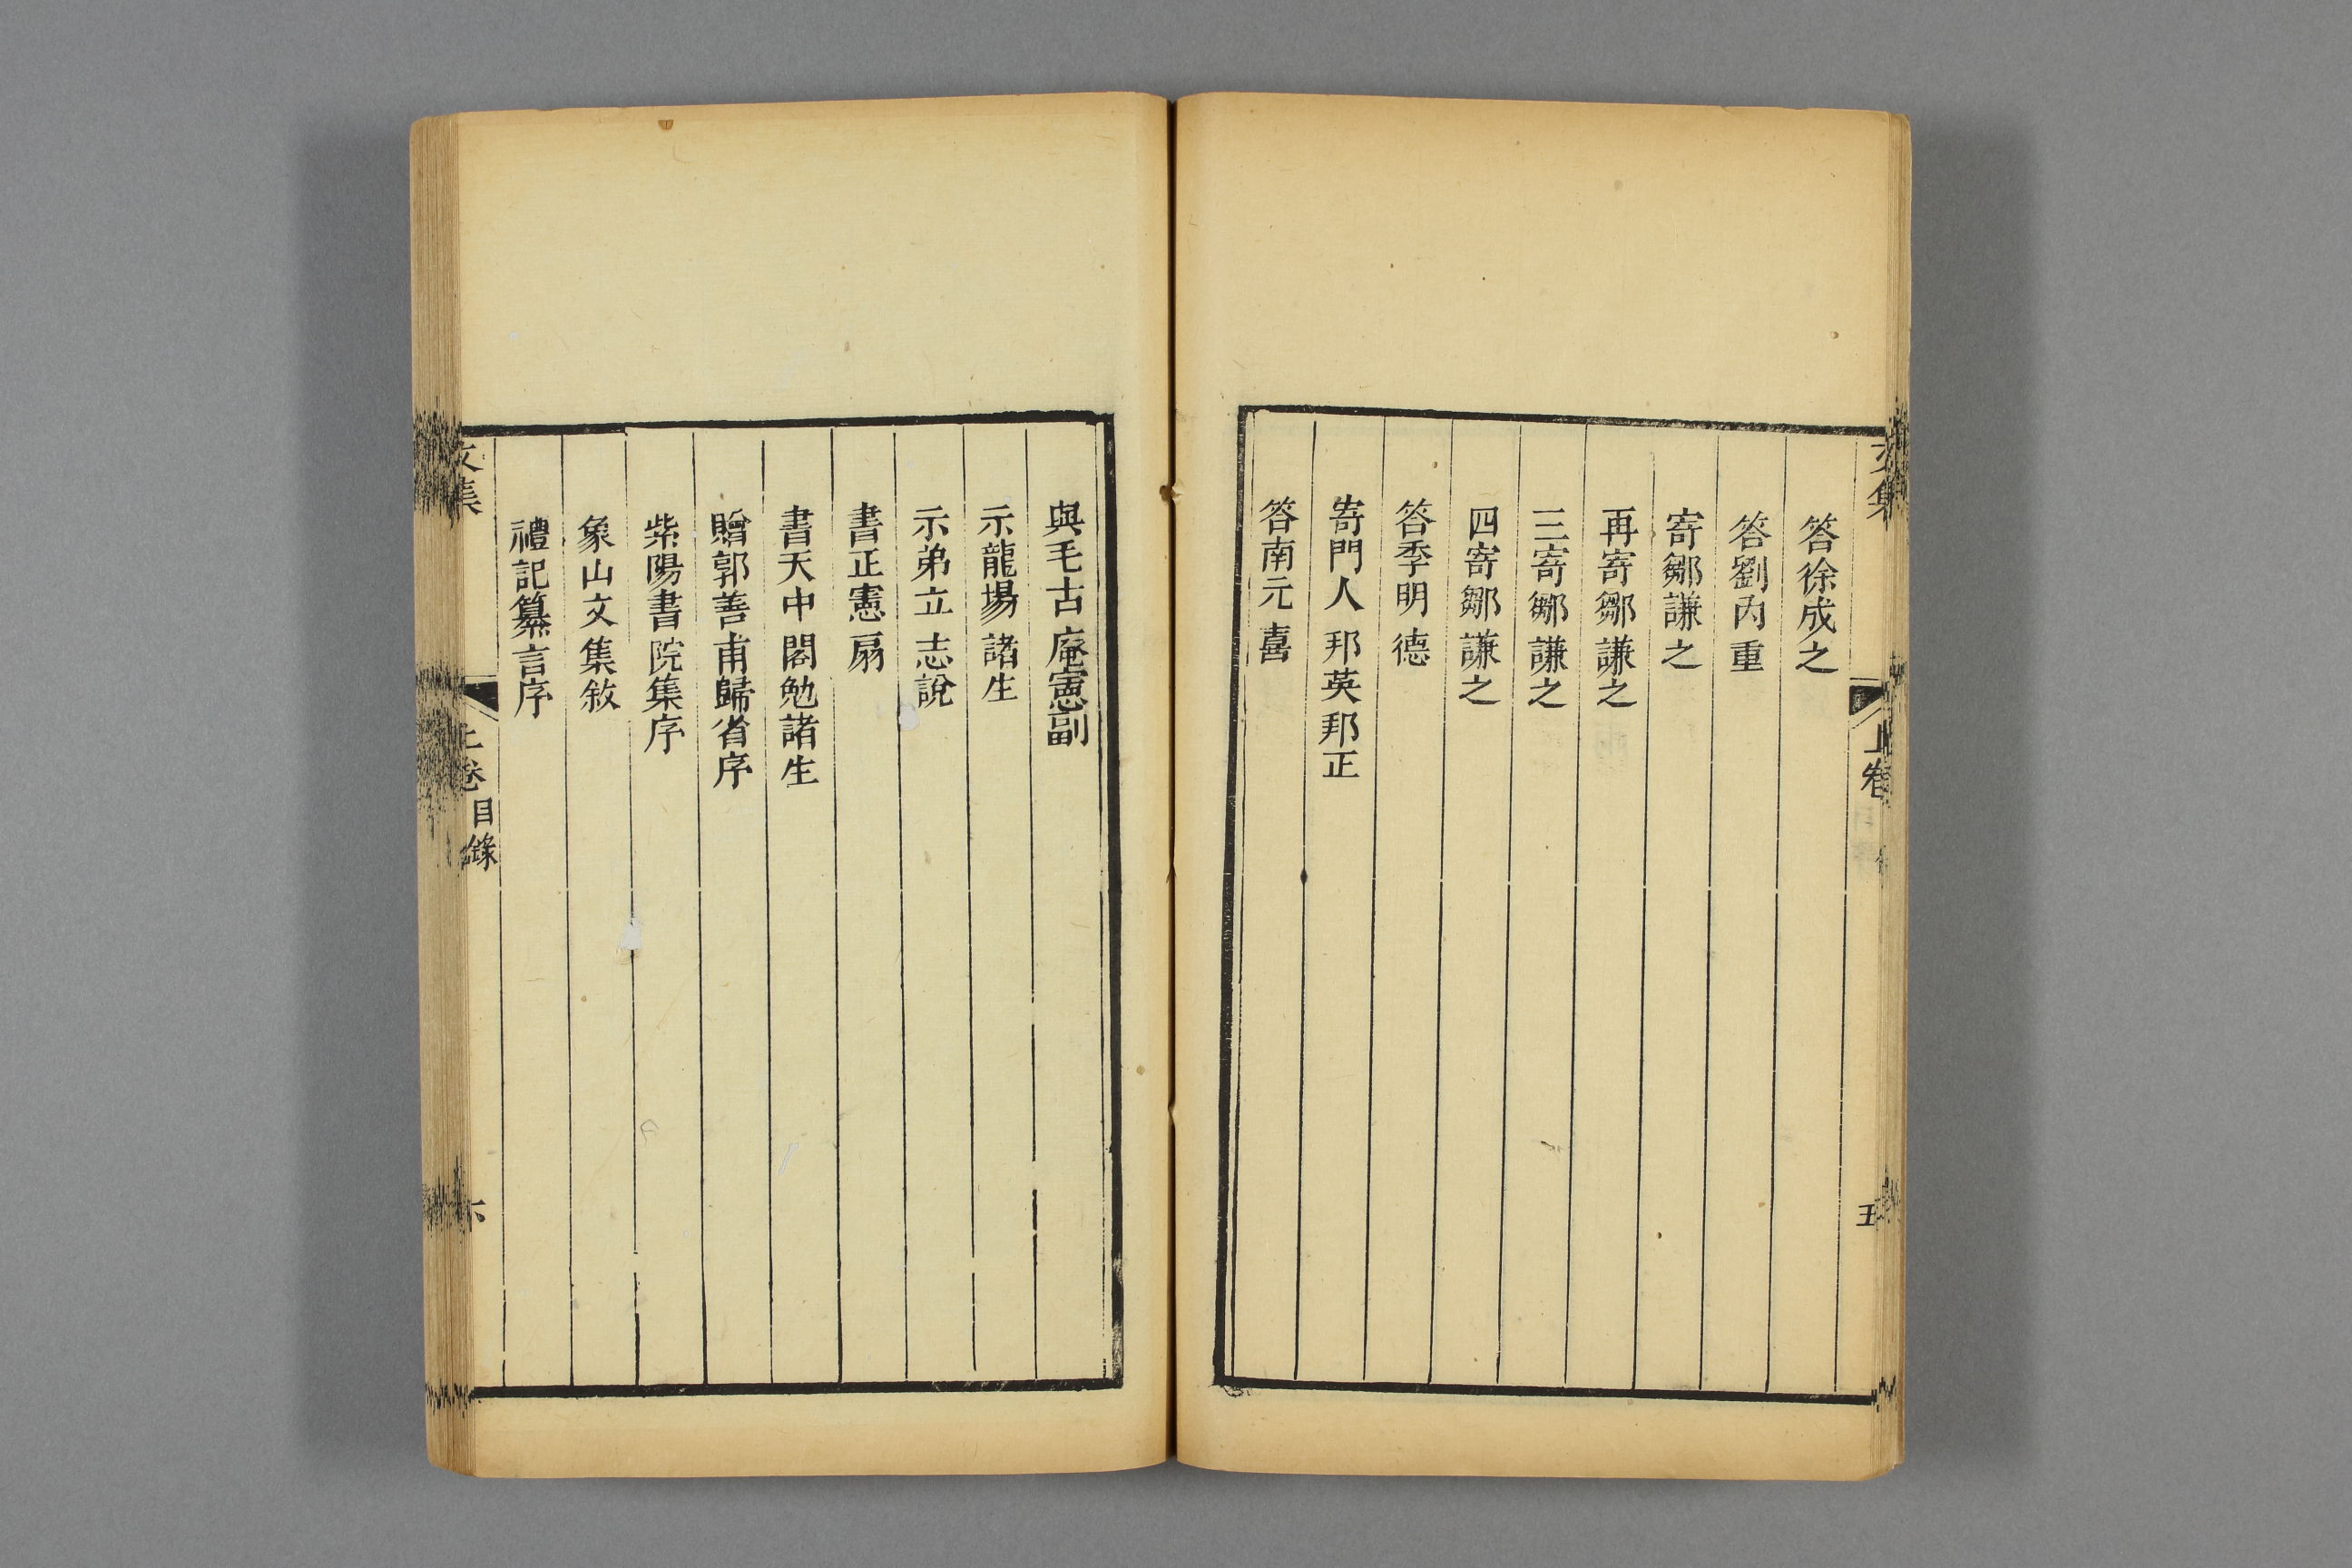 文集
上卷
五
答徐成之
答劉內重
寄鄒謙之
再寄鄒謙之
三寄鄒謙之
四寄鄒謙之
答季明德
寄門人邦英邦正
答南元喜
與毛古庵憲副
示龍場諸生
示弟立志說
書正憲扇
書天中閣勉諸生
贈郭善甫歸省序
紫陽書院集序
象山文集敘
禮記纂言序
文集
上卷
目錄
六